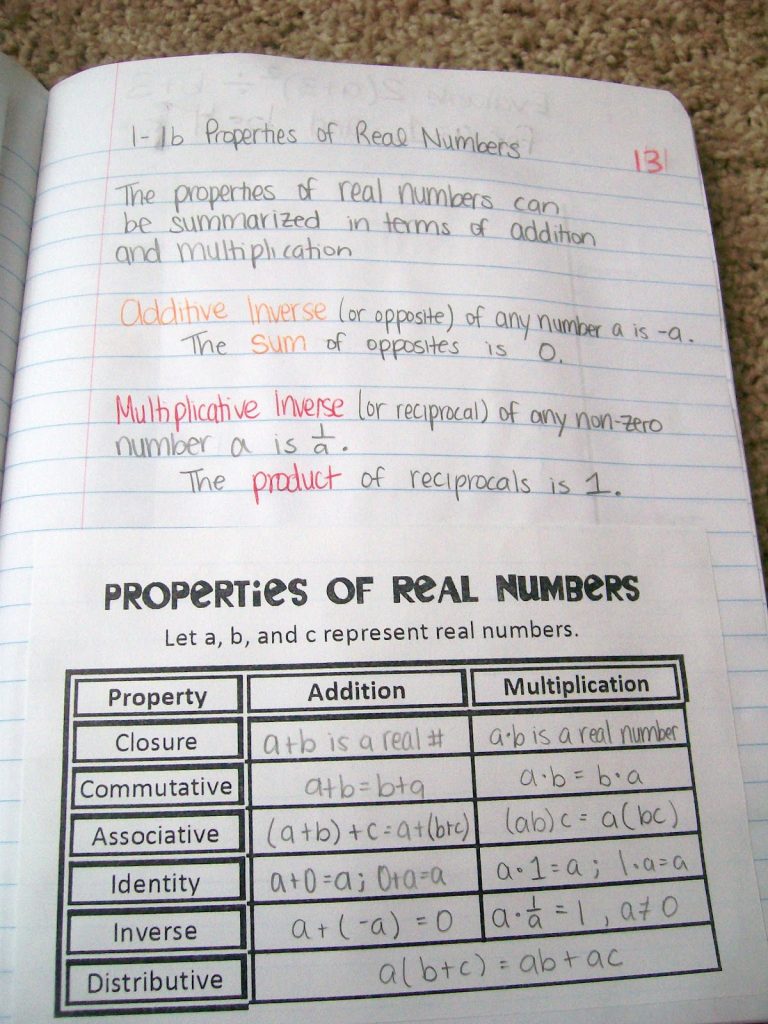 1-1b Properties of Real Numbers
131
The properties of real numbers can
be summarized in terms of addition
and multiplication
Additive Inverse (or opposite) of any number a is -a.
The sum of opposites is 0.
Multiplicative Inverse (or reciprocal) of any non-zero
number a is 1/a.
The product of reciprocals is 1.
PROPERTIES OF REAL NUMBERS
Let a, b, and c represent real numbers.
Property Addition Multiplication
Closure a+b is a real # a·b is a real number
Commutative a+b=b+a a·b = b·a
Associative (a+b)+c=a+(b+c) (ab)c = a(bc)
Identity a+0=a; 0+a=a a·1=a; 1·a=a
Inverse a+(-a) = 0 a·1/a = 1, a≠0
Distributive a(b+c) = ab+ac